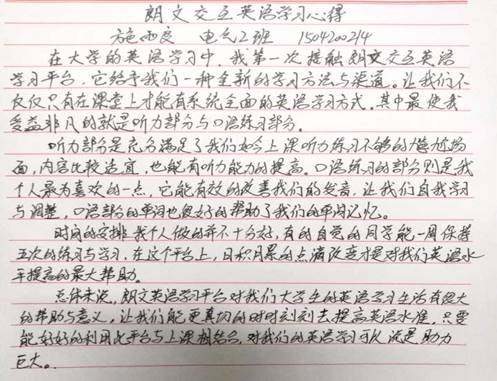 朗文交互英语学习心得
施西良 电气2班 1504200214
在大学的英语学习中,我第一次接触朗文交互英语
学习平台,它给予我们一种全新的学习方法与渠道。让我们不
仅仅只有在课堂上才能有系统全面的英语学习方式。其中最使我
受益非凡的就是听力部分与口语练习部分。
听力部分是充分满足了我们如今上课听力练习不够的尴尬场
面,内容比较适宜,也能有听力能力的提高。口语练习的部分则是我
个人最为喜欢的一点,它能有效的改善我们的发音,让我们自我学习
与调整,口语部分的单词也很好的帮助了我们的单词记忆。
时间的安排我个人做的并不十分好,有的自觉的同学能一周保持
五次的练习与学习,在这个平台上,日积月累的点滴改变才是对我们英语水
平提高的最大帮助。
总体来说,朗文英语学习平台对我们大学生的英语学习生活有很大
的帮助与意义,让我们能更真切的时时刻刻去提高英语水准,只要
能好好的利用此平台与上课相结合,对我们的英语学习可以说是助力
巨大。